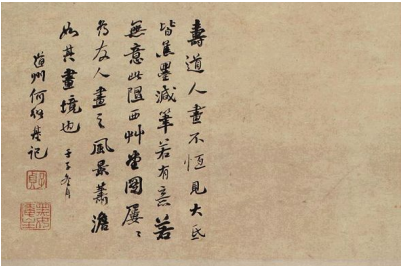 壽道人畫不恆見大氐
皆蕉墨減筆若有意若
無意此阻西艸堂圖屢〻
為友人畫之風最蕭澹
如其畫境也 壬子冬月
道州何紹基記